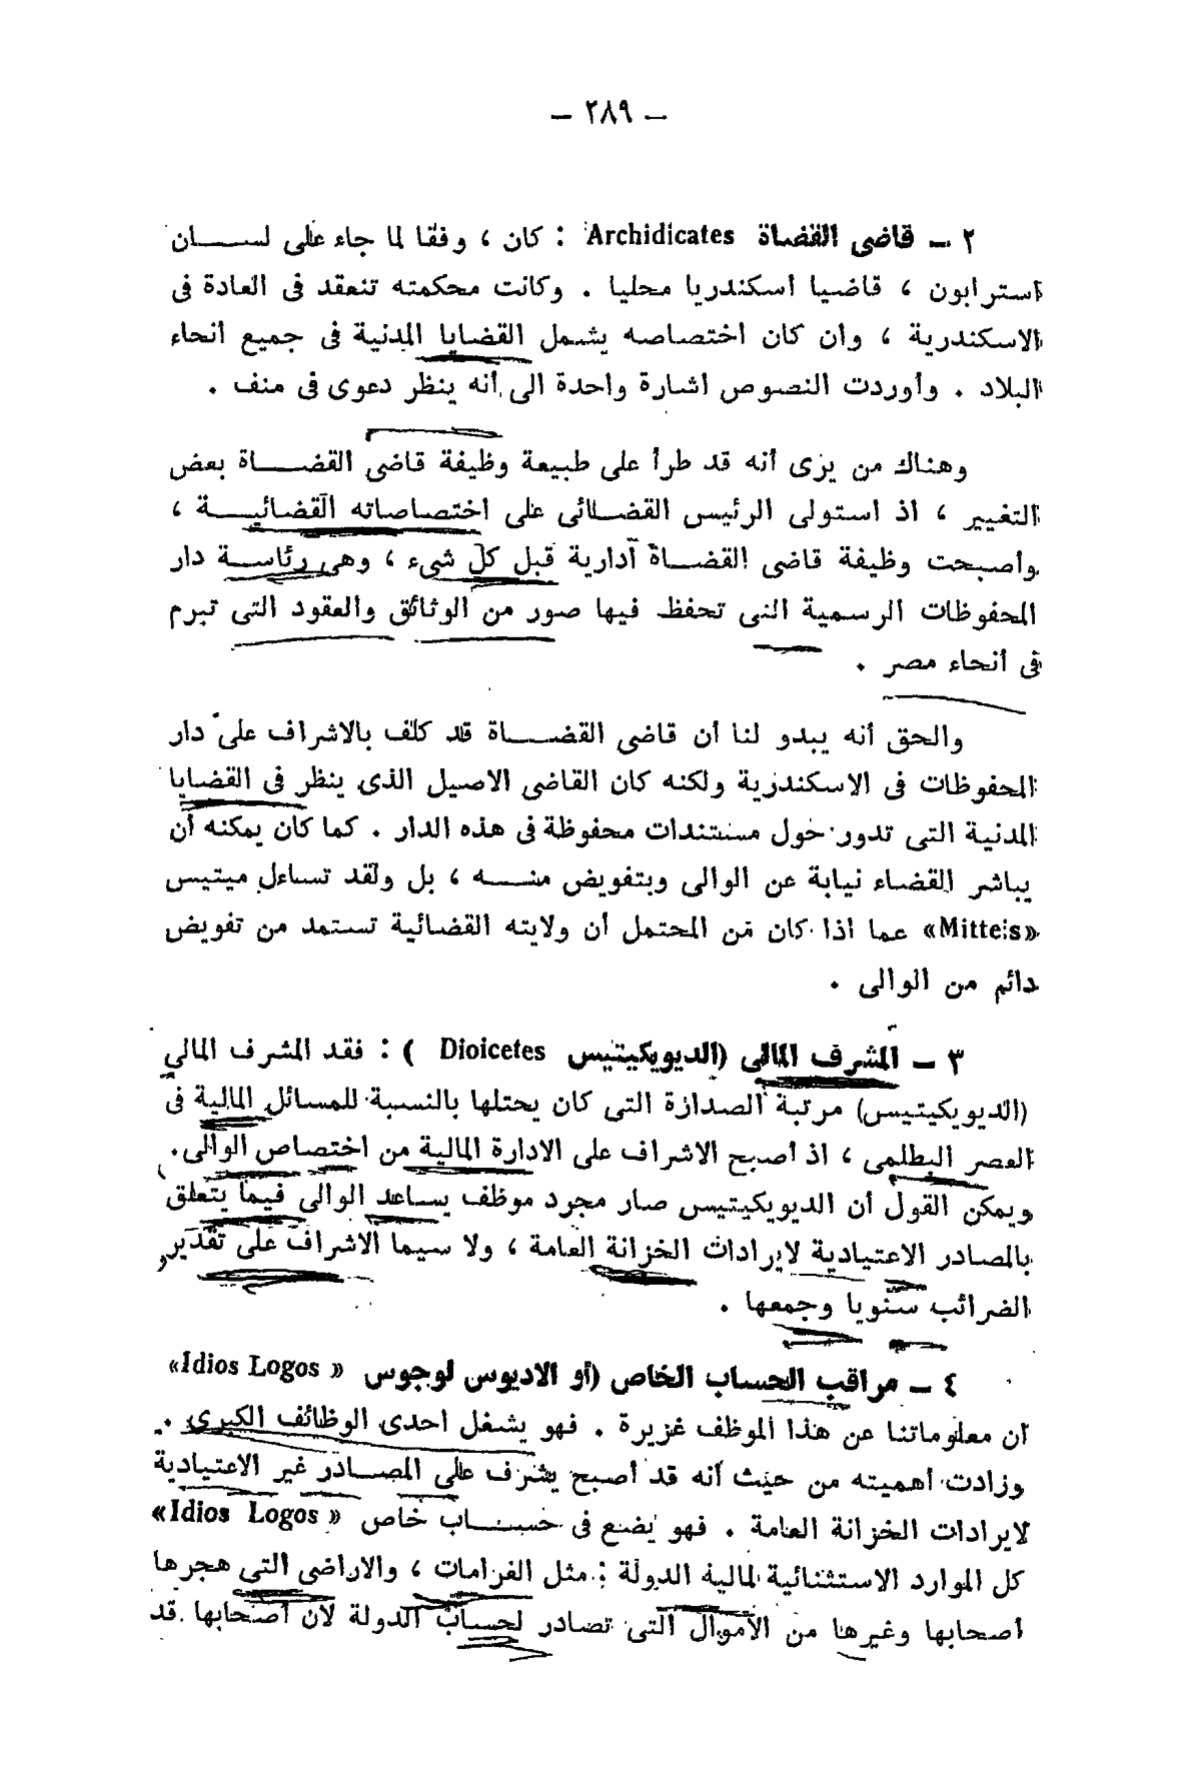 — ٢٨٩ —
٢ — قاضى القضاة Archidicates : كان ، وفقا لما جاء على لسان
استرابون ، قاضيا اسكندريا محليا . وكانت محكمته تنعقد فى العادة فى
الاسكندرية ، وان كان اختصاصه يشمل القضايا المدنية فى جميع أنحاء
البلاد . وأوردت النصوص اشارة واحدة الى أنه ينظر دعوى فى منف .
وهناك من يرى أنه قد طرأ على طبيعة وظيفة قاضى القضاة بعض
التغيير ، اذ استولى الرئيس القضائى على اختصاصاته القضائية ،
وأصبحت وظيفة قاضى القضاة ادارية قبل كل شىء ، وهى رئاسة دار
المحفوظات الرسمية التى تحفظ فيها صور من الوثائق والعقود التى تبرم
فى أنحاء مصر .
والحق أنه يبدو لنا أن قاضى القضاة قد كلف بالاشراف على دار
المحفوظات فى الاسكندرية ولكنه كان القاضى الاصيل الذى ينظر فى القضايا
المدنية التى تدور حول مستندات محفوظة فى هذه الدار . كما كان يمكنه أن
يباشر القضاء نيابة عن الوالى وبتفويض منه ، بل ولقد تساءل ميتيس
«Mitteis» عما اذا كان من المحتمل أن ولايته القضائية تستمد من تفويض
دائم من الوالى .
٣ — المشرف المالى (الديويكيتيس Dioicetes ) : فقد المشرف المالى
(الديويكيتيس) مرتبة الصدارة التى كان يحتلها بالنسبة للمسائل المالية فى
العصر البطلمى ، اذ أصبح الاشراف على الادارة المالية من اختصاص الوالى .
ويمكن القول أن الديويكيتيس صار مجرد موظف يساعد الوالى فيما يتعلق
بالمصادر الاعتيادية لايرادات الخزانة العامة ، ولا سيما الاشراف على تقدير
الضرائب سنويا وجمعها .
٤ — مراقب الحساب الخاص (أو الاديوس لوجوس «Idios Logos »
أن معلوماتنا عن هذا الموظف غزيرة . فهو يشغل احدى الوظائف الكبرى .
وزادت أهميته من حيث أنه قد أصبح يشرف على المصادر غير الاعتيادية
لايرادات الخزانة العامة . فهو يضع فى حساب خاص «Idios Logos »
كل الموارد الاستثنائية لمالية الدولة : مثل الغرامات ، والاراضى التى هجرها
أصحابها وغيرها من الأموال التى تصادر لحساب الدولة لأن أصحابها قد